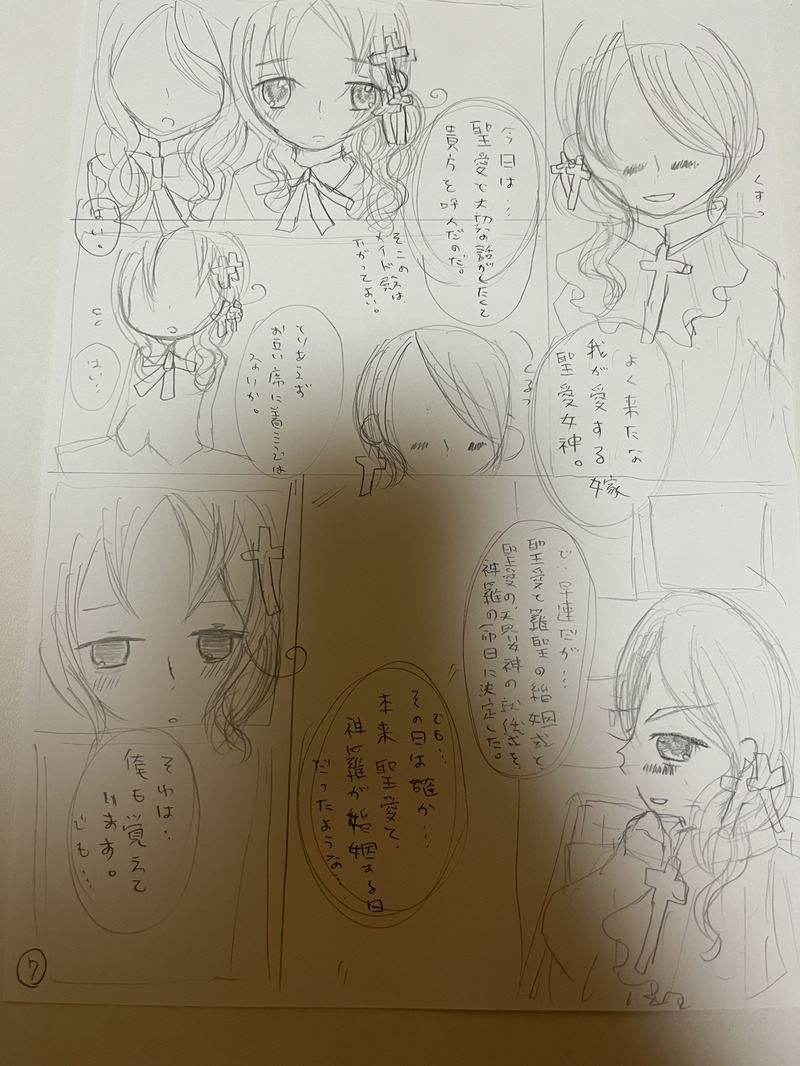 くすっ
よく来たな
我が愛する嫁
聖愛女神。
今日は…
聖愛で大切な話がしたくて
貴方を呼んだのだ。
はい。
そこの奴は、
メイド受
たがってよい。
くるっ
とりあえず
お互い席に着こうでは
ないか。
はい…
で…早速だが…
聖愛と羅聖の結婚式と、
聖愛の、天界女神の就任式を、
神羅の命日に決定した。
でも…
その日は確か…
本来聖愛と、
神羅が結婚する日
だったような…
それは…
俺も覚えて
います。
でも…
7